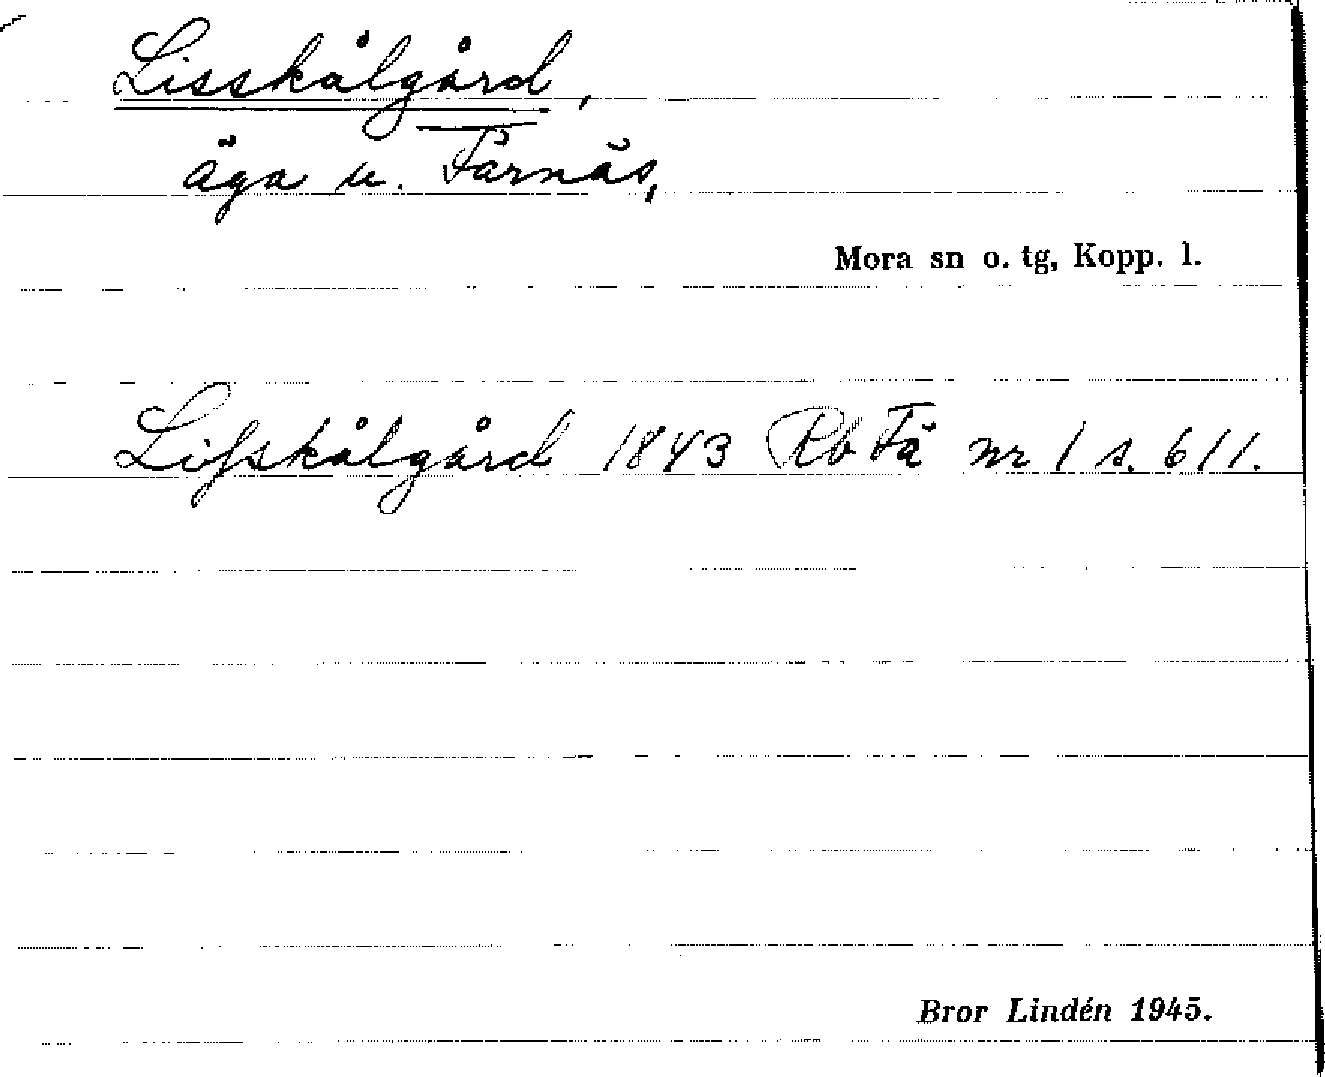 Lisskålgård,
äga u. Färnäs,
Mora sn o. tg, Kopp. l.
Lifskålgård 1843 Rb Fä nr 1 s. 611.
Bror Lindén 1945.